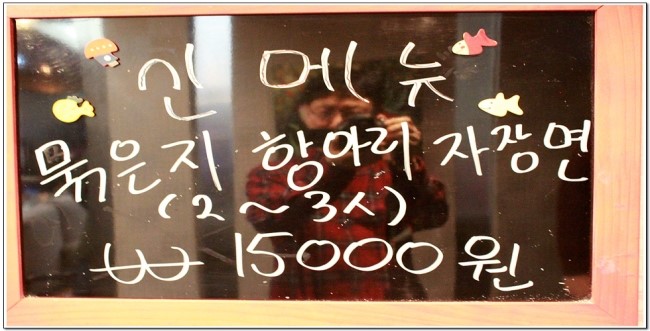 신 메뉴
묵은지 항아리 자장면
(2~3人)
₩ 15000원